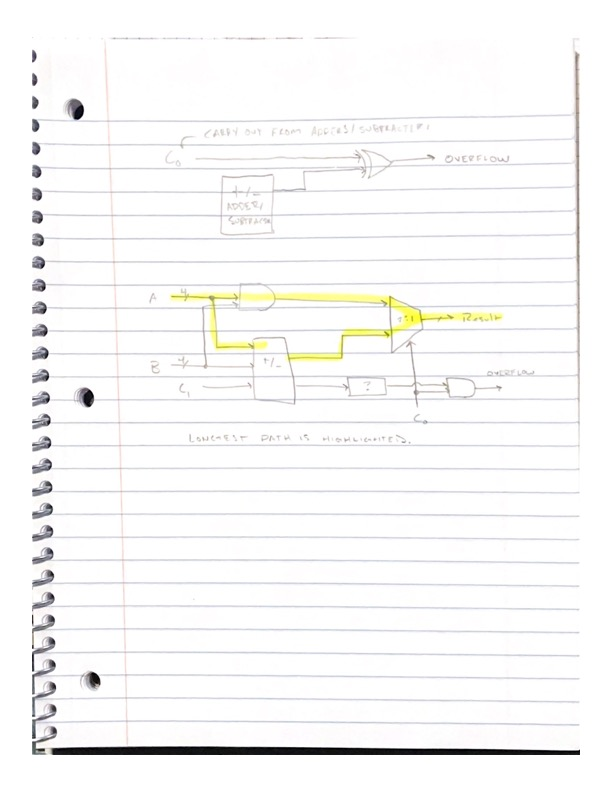 CARRY OUT FROM ADDERS/SUBTRACTER
C₀ OVERFLOW
+/-
ADDER/
SUBTRACTER
A 4
2:1 Result
+/-
B 4
OVERFLOW
C₁ ?
C₀
LONGEST PATH IS HIGHLIGHTED.